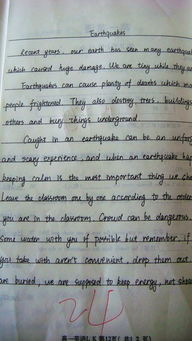 Earthquakes
Recent years, our earth has seen many earthquak
which caused huge damage. We are tiny while they are
Earthquakes can cause plenty of deaths which ma
people frightened. They also destroy trees, buildings
others and bury things underground.
Caught in an earthquake can be an unforg
and scary experience, and when an earthquake hap
keeping calm is the most important thing we
Leave the classroom one by one according to the order
you are in the classroom. Crowd can be dangerous.
some water with you if possible but remember, if
you take with aren't convenient, drop them out.
are buried, we are supposed to keep energy, not
24